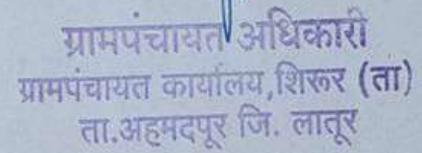 ग्रामपंचायत अधिकारी
ग्रामपंचायत कार्यालय,शिरूर (ता)
ता.अहमदपूर जि. लातूर